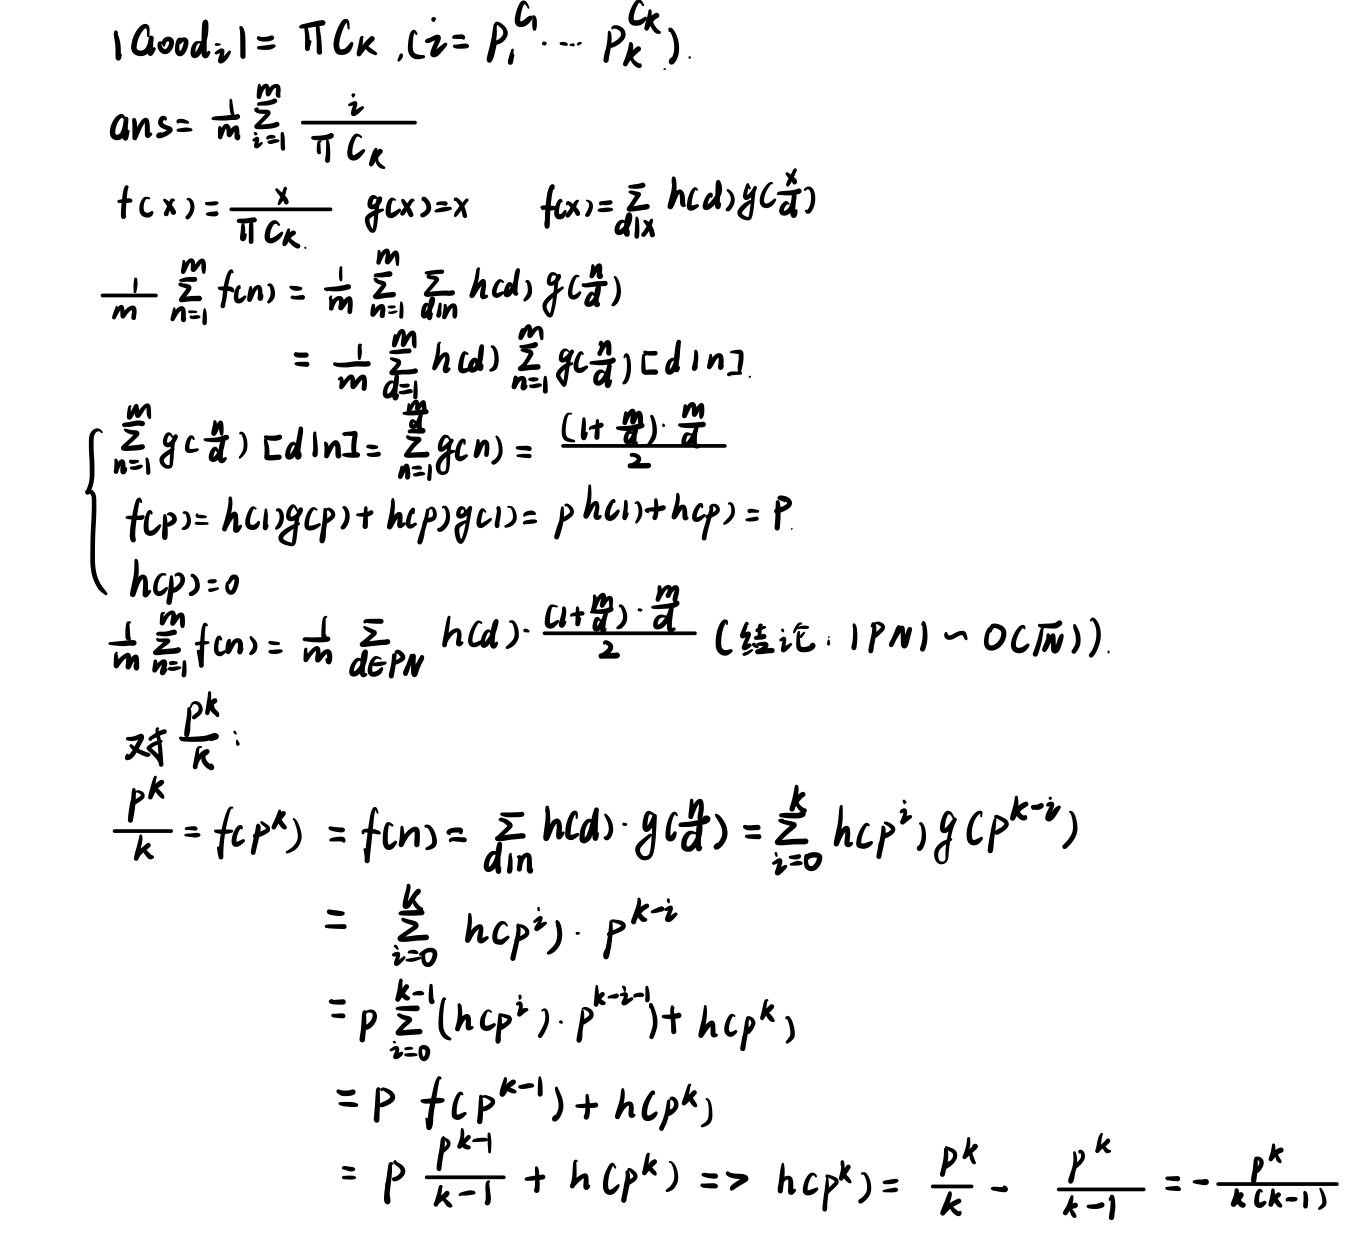 |Good_i| = πC_k ,(i = p_1^{C_1} ··· p_k^{C_k}).
ans = \frac{1}{m} \sum_{i=1}^{m} \frac{i}{π C_k}
f(x) = \frac{x}{π C_k.} g(x)=x f(x) = \sum_{d|x} h(d) g(\frac{x}{d})
\frac{1}{m} \sum_{n=1}^{m} f(n) = \frac{1}{m} \sum_{n=1}^{m} \sum_{d|n} h(d) g(\frac{n}{d})
= \frac{1}{m} \sum_{d=1}^{m} h(d) \sum_{n=1}^{m} g(\frac{n}{d}) [d|n].
\sum_{n=1}^{m} g(\frac{n}{d}) [d|n] = \sum_{n=1}^{\frac{m}{d}} g(n) = \frac{(1+\frac{m}{d})·\frac{m}{d}}{2}
f(p) = h(1)g(p) + h(p)g(1) = p h(1) + h(p) = p.
h(p) = 0
\frac{1}{m} \sum_{n=1}^{m} f(n) = \frac{1}{m} \sum_{d∈PN} h(d) · \frac{(1+\frac{m}{d})·\frac{m}{d}}{2} (结论: |PN| ~ O(\sqrt{N})).
对 \frac{p^k}{k} :
\frac{p^k}{k} = f(p^k) = f(n) = \sum_{d|n} h(d) · g(\frac{n}{d}) = \sum_{i=0}^{k} h(p^i) g(p^{k-i})
= \sum_{i=0}^{k} h(p^i) · p^{k-i}
= p \sum_{i=0}^{k-1} (h(p^i) · p^{k-i-1}) + h(p^k)
= p f(p^{k-1}) + h(p^k)
= p \frac{p^{k-1}}{k-1} + h(p^k) => h(p^k) = \frac{p^k}{k} - \frac{p^k}{k-1} = -\frac{p^k}{k(k-1)}